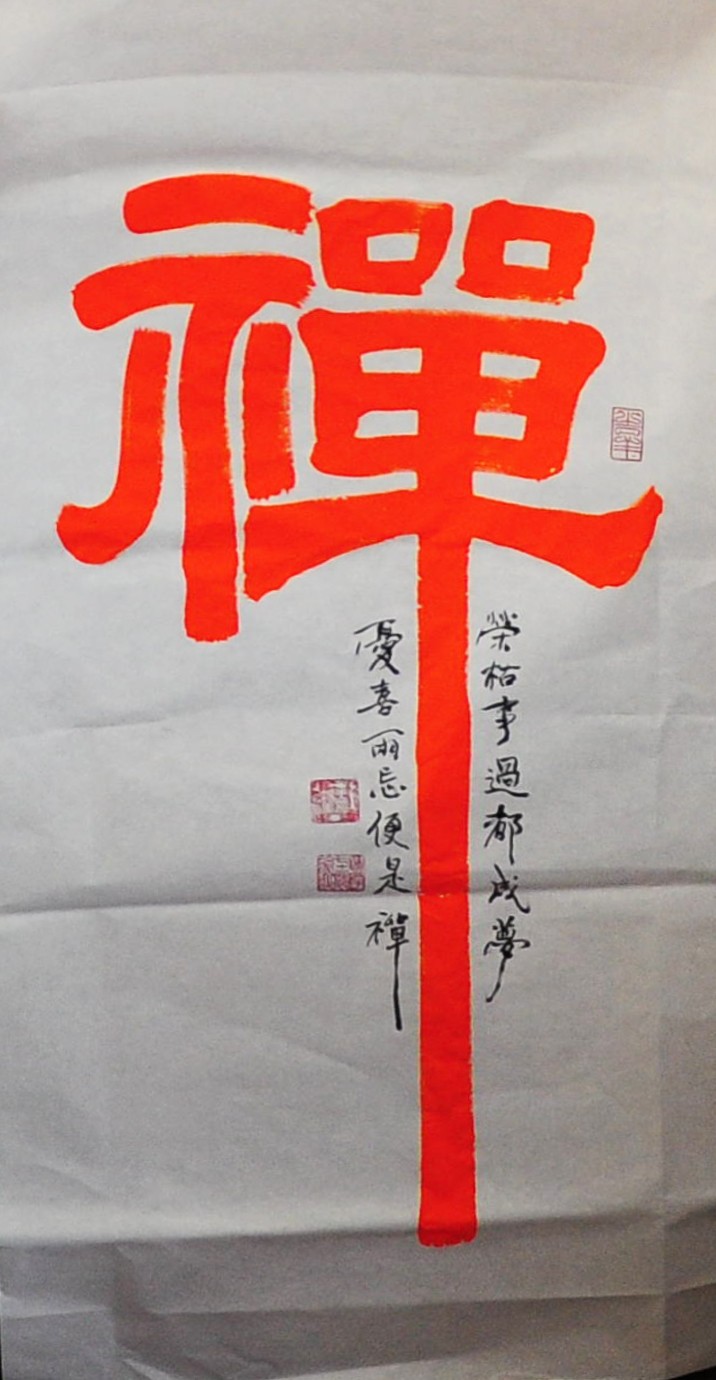 禪
榮枯事過都成夢
憂喜兩忘便是禪